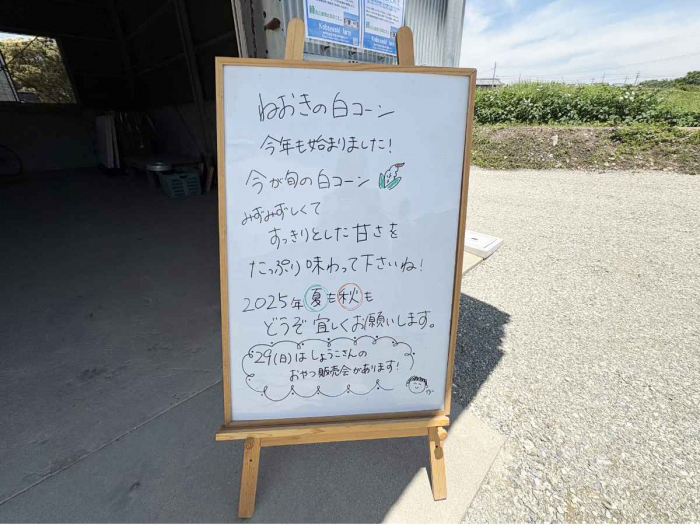 Kobayashi farm
ねおきの白コーン
今年も始まりました!
今が旬の白コーン
みずみずしくて
すっきりとした甘さを
たっぷり味わって下さいね!
2025年夏も秋も
どうぞ宜しくお願いします。
29(日)はしょうこさんの
おやつ販売会があります!